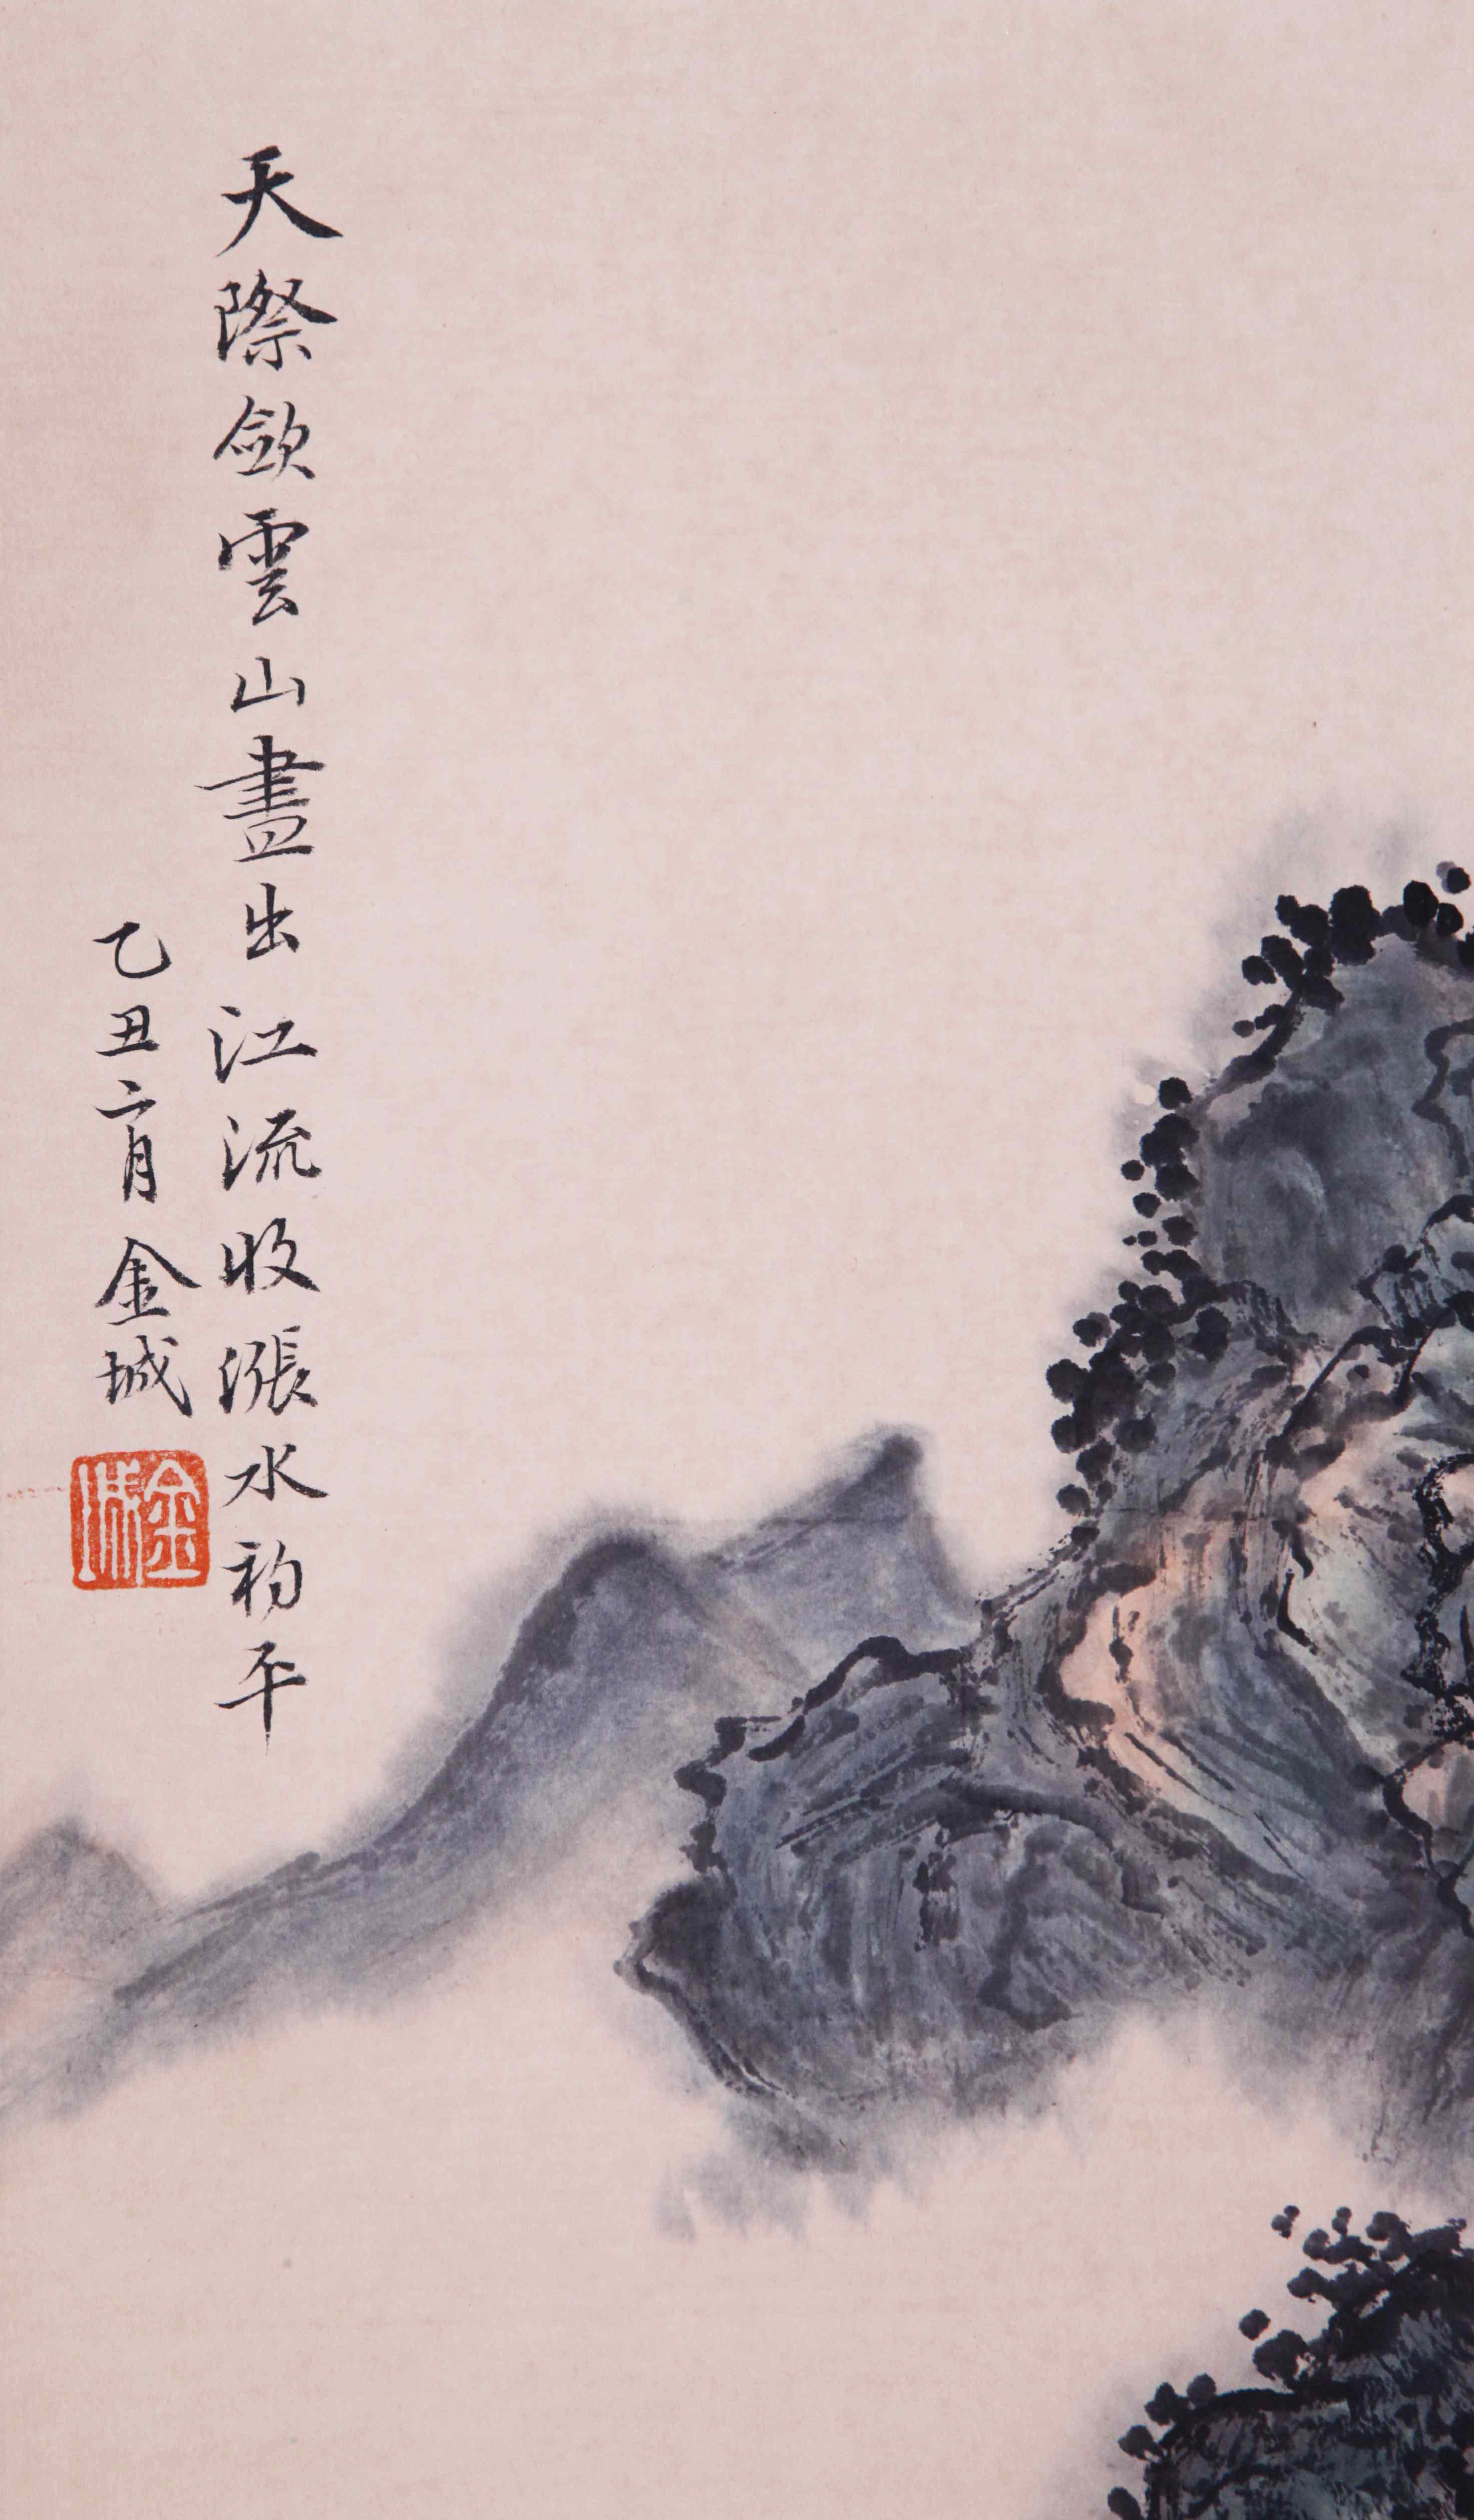 天際歛雲山盡出江流收漲水初平
乙丑六月金城
金城